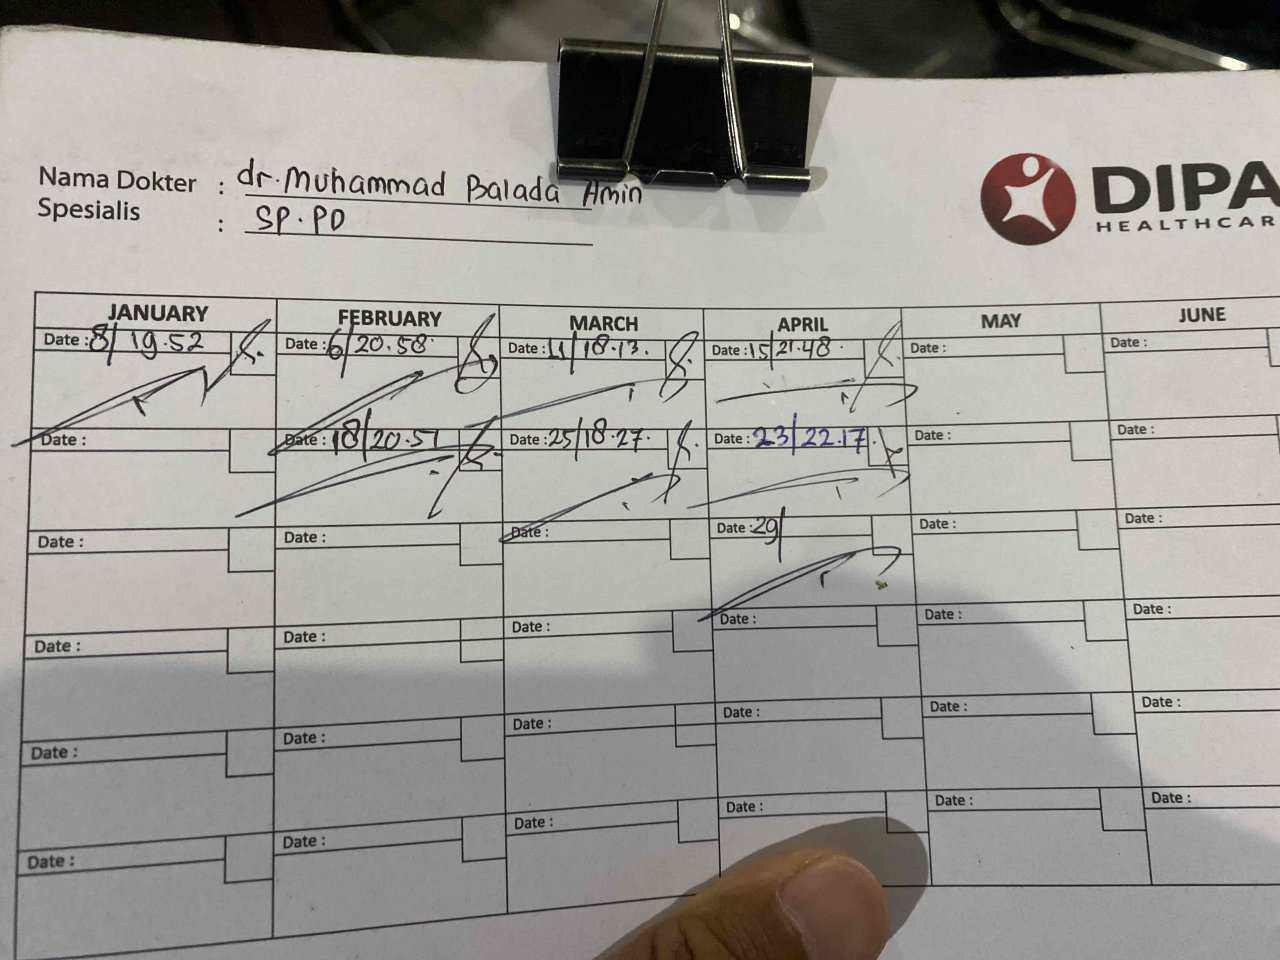 Nama Dokter : dr. Muhammad Balada Amin
Spesialis : SP.PD
DIPA
HEALTHCAR
JANUARY FEBRUARY MARCH APRIL MAY JUNE
Date : 8/ 19.52 Date : 6/ 20.58. Date : 11/ 18.13. Date : 15/ 21.48. Date : Date :
Date : Date : 18/ 20.51 Date : 25/ 18.27. Date : 23/ 22.17. Date : Date :
Date : Date : Date : Date : 29/ Date : Date :
Date : Date : Date : Date : Date : Date :
Date : Date : Date : Date : Date : Date :
Date : Date : Date : Date : Date : Date :